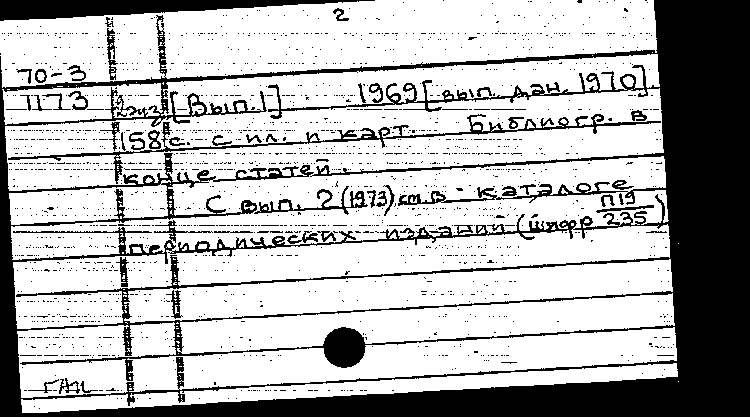 2
70-3
7173 2экз [Вып.1] 1969 [вып. дан. 1970].
158 с. с ил. и карт. Библиогр. в
конце статей.
С вып. 2 (1973) см. в каталоге
периодических изданий (шифр П19/235)